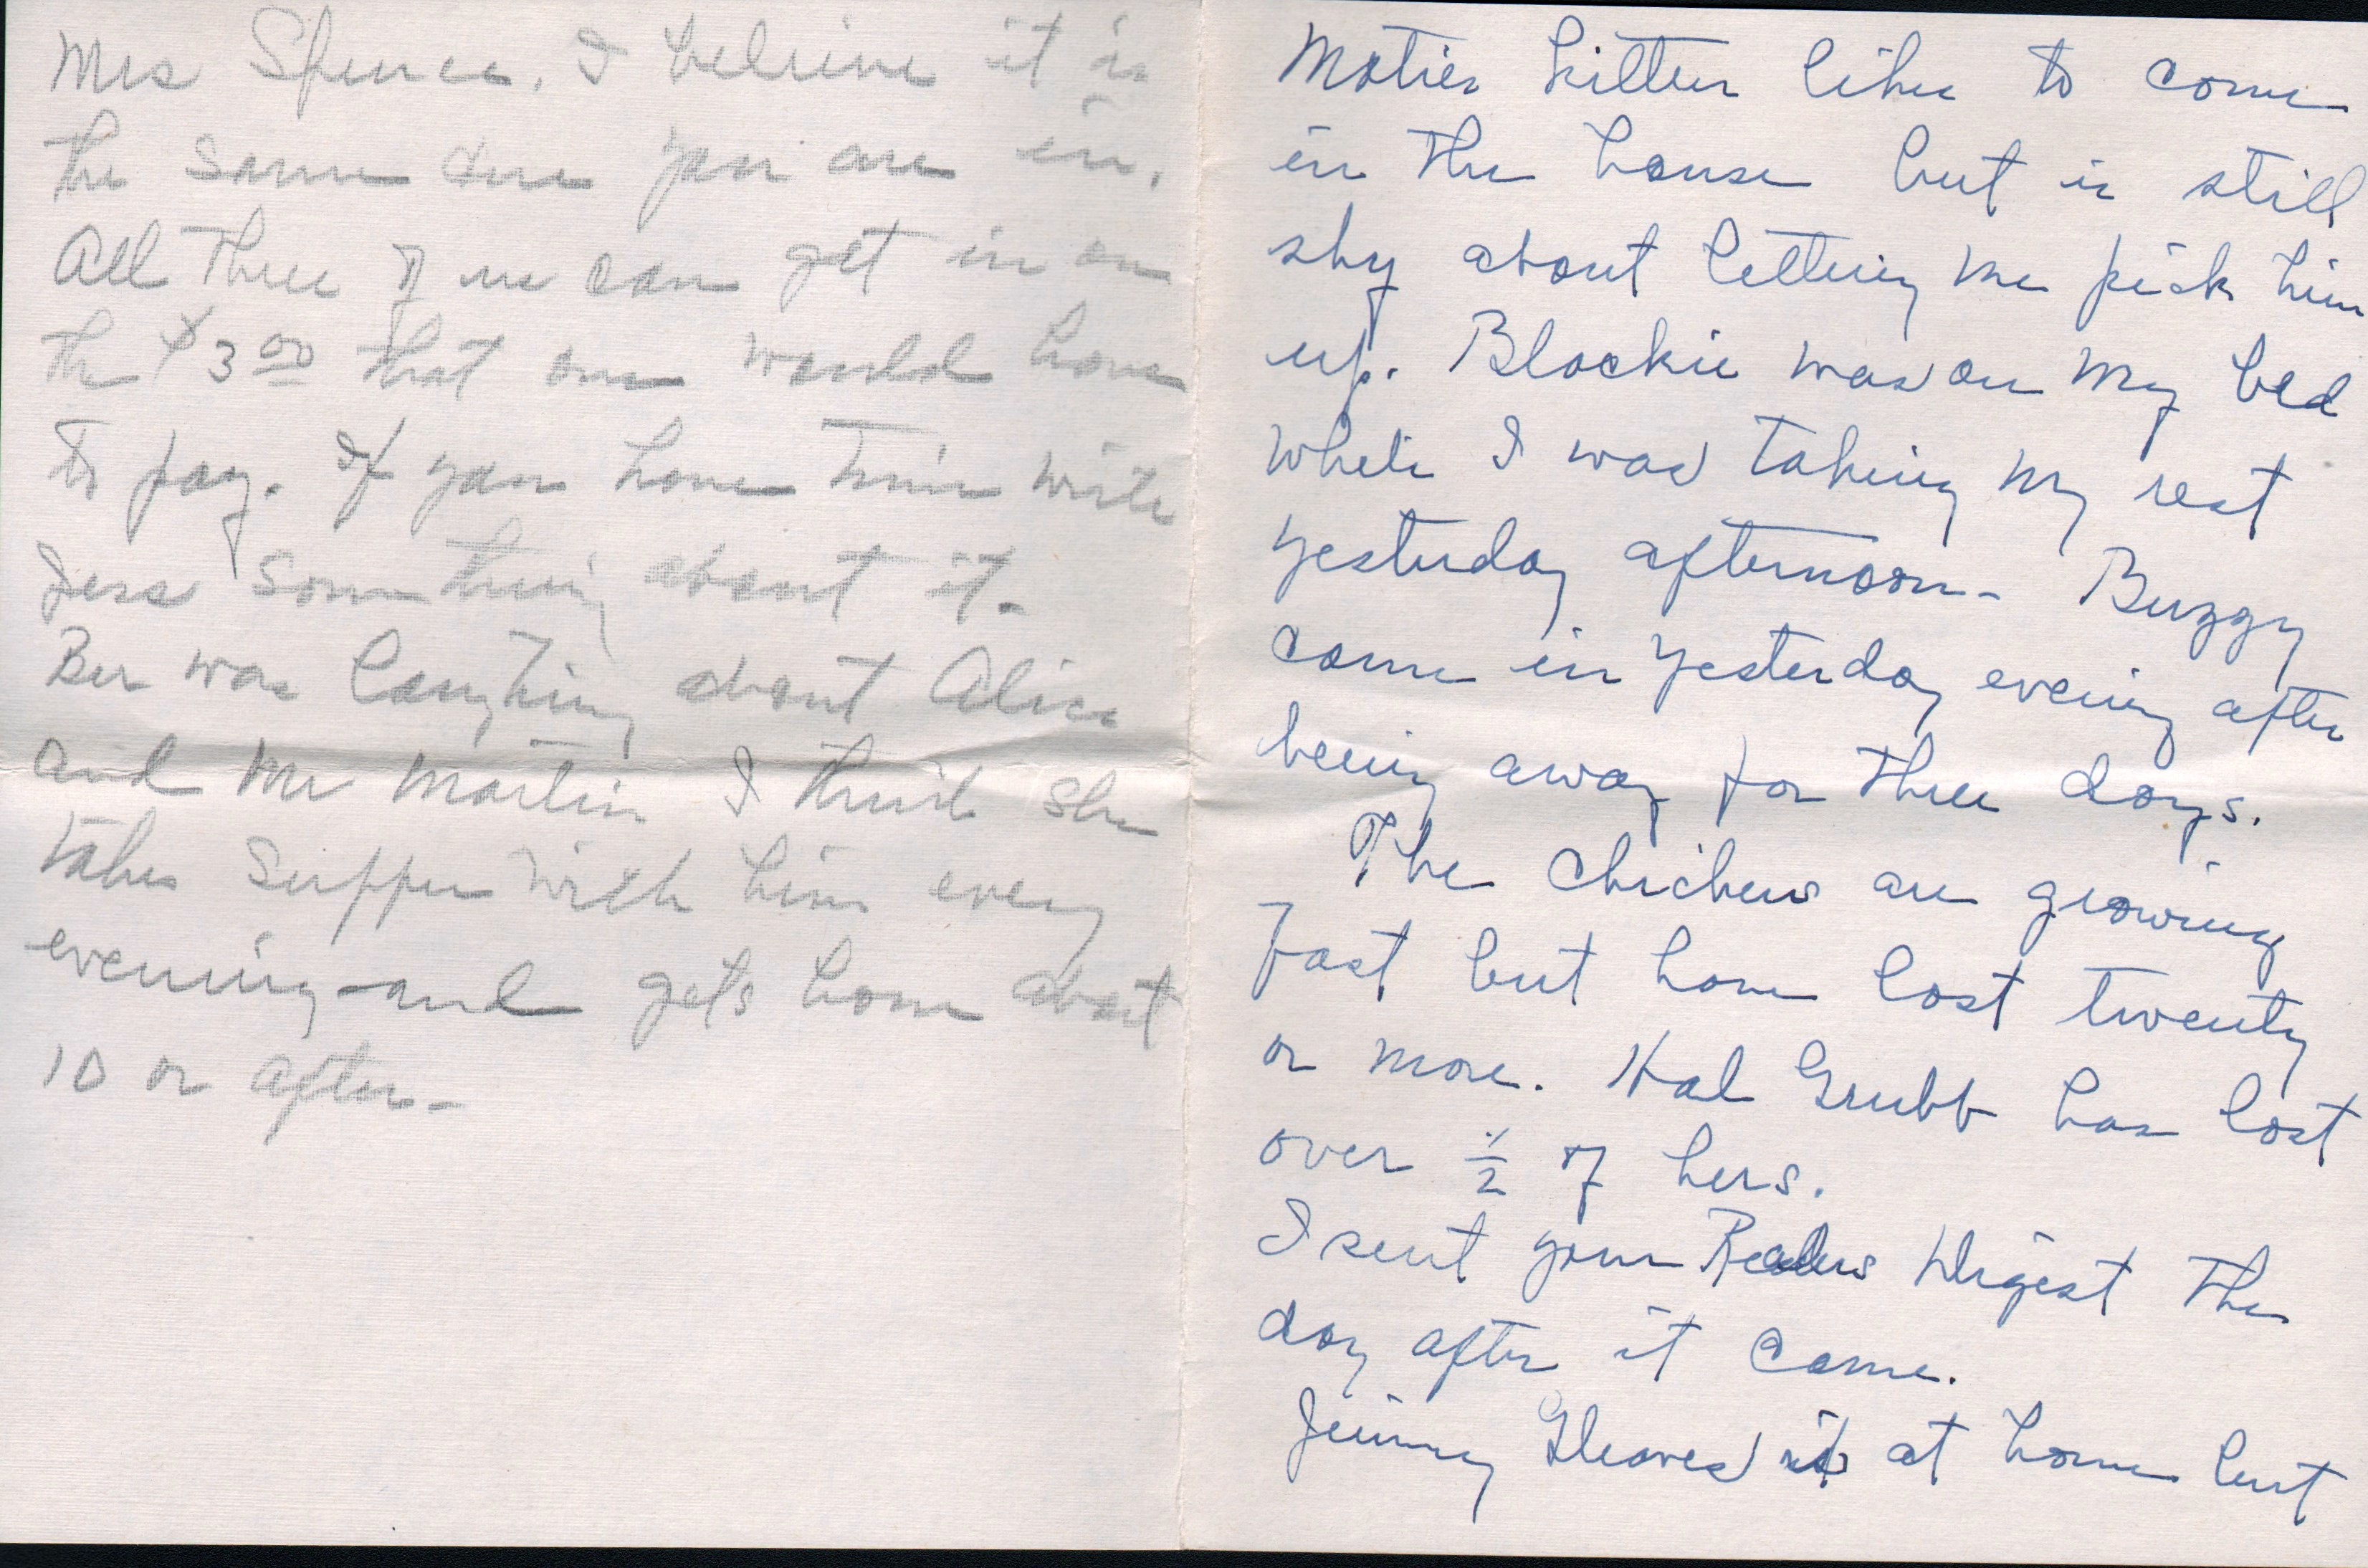 Mrs Spence. I believe it is
the same one you are in.
All three of us can get in on
the $3.00 that one would have
to pay. If you have time write
Jess something about it.
Bee was laughing about Alice
and Mr Martin I think she
takes supper with him every
evening - and gets home about
10 or after -
Moties kitten likes to come
in the house but is still
shy about letting me pick him
up. Blackie was on my bed
while I was taking my rest
yesterday afternoon - Buzzy
came in yesterday evening after
being away for three days.
The chickens are growing
fast but have lost twenty
or more. Hal Grubb has lost
over 1/2 of hers.
I sent your Readers Digest the
day after it came.
Jimmy Gleaves is at home but